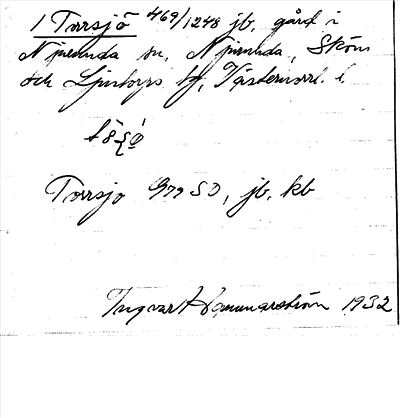 1 Torrsjö 469/1248 jb. gård i
Njurunda sn, Njurunda, Sköns
och Ljustorps tg, Västernorrl. l.
Torrsjo 979 SD, jb, kb
Ingvar Hammarström 1932